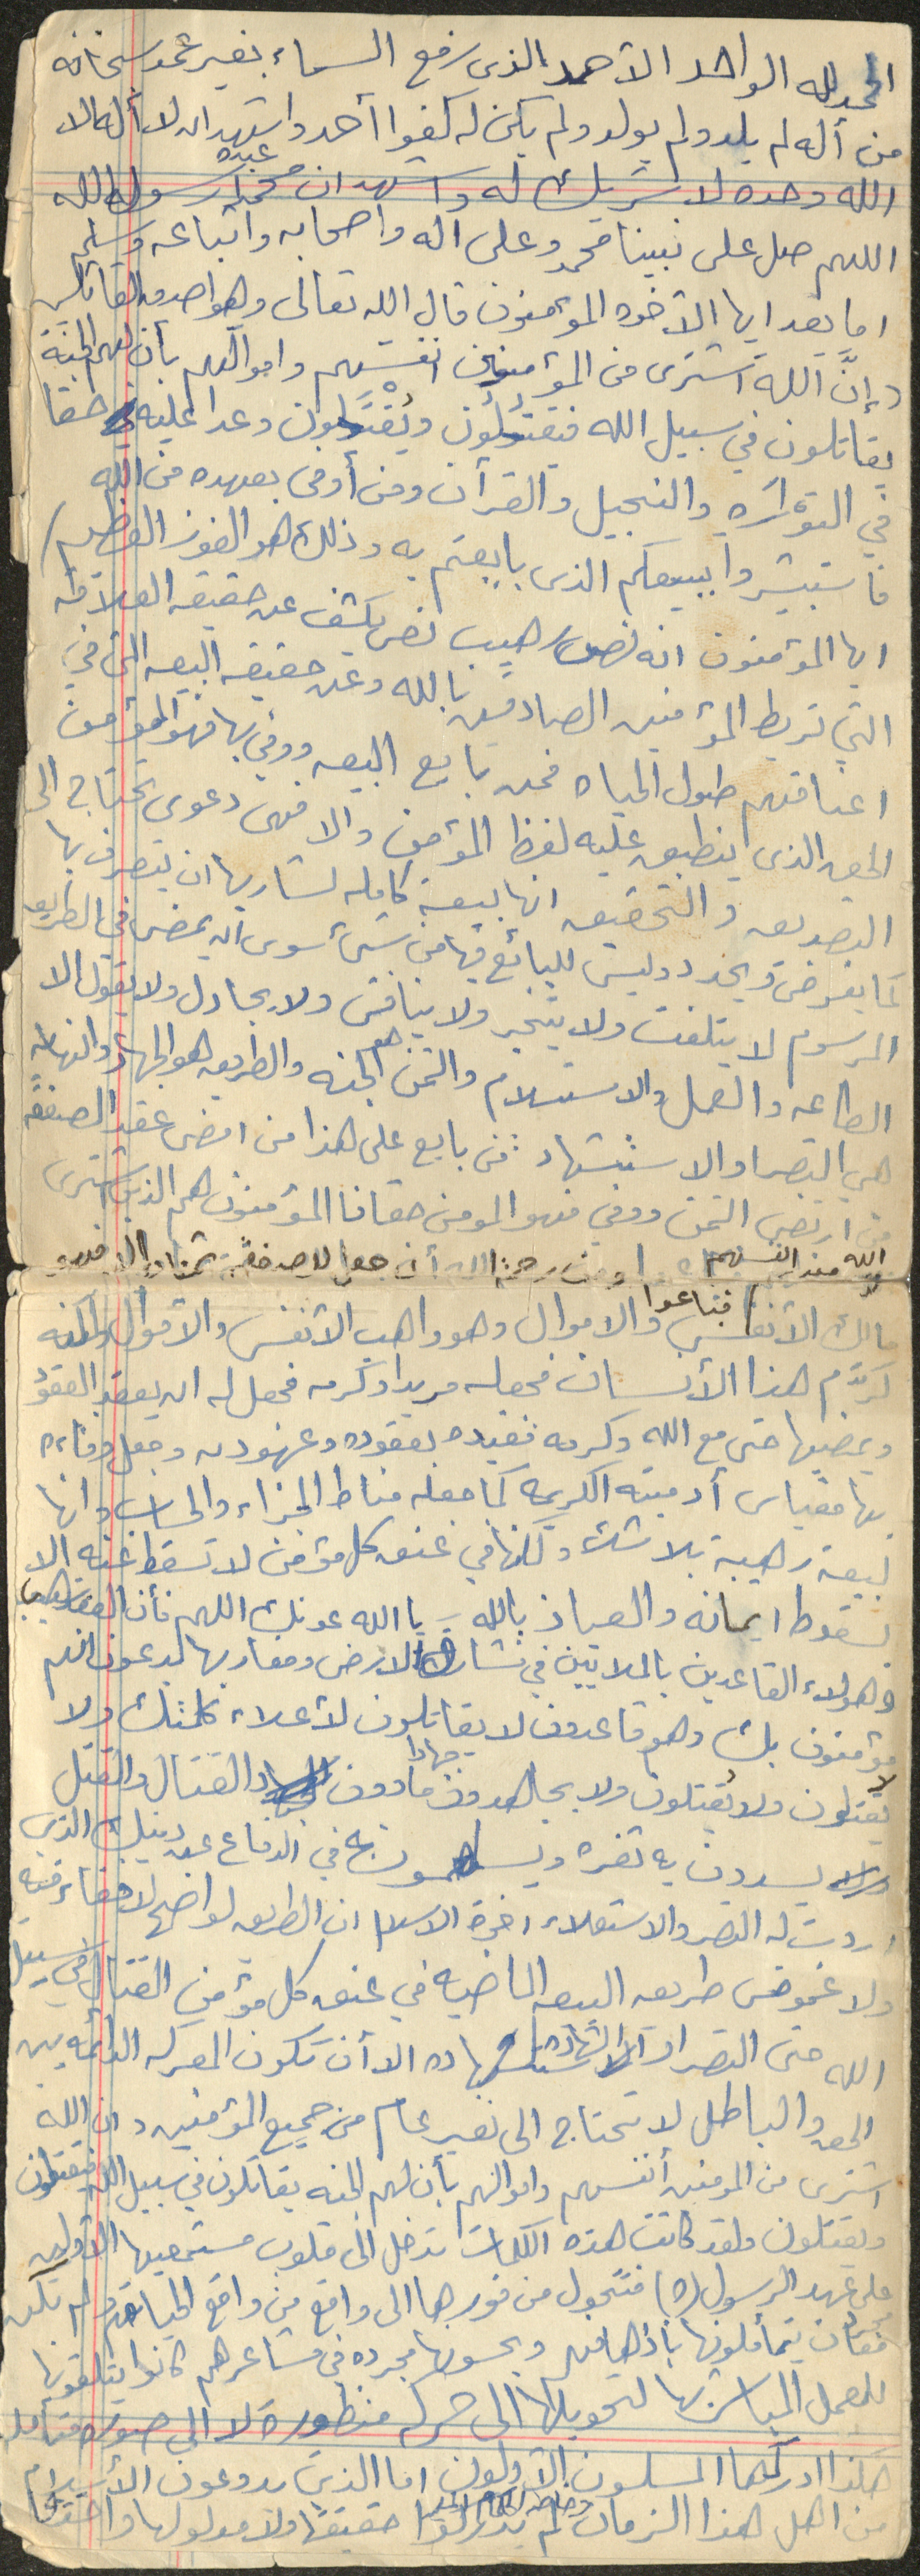 الحمد لله الواحد الأحمد الذى رفع السماء بغير عمد سبحانه
من أله لم يلد ولم يولد ولم يكن له كفوا أحد واشهد ان لا أله الا
الله وحده لا شريك له واشهد ان محمدا عبده رسول الله
اللهم صل على نبينا محمد وعلى اله واصحابه واتباعه وسلم
اما بعد ايها الأخوه المؤمنون قال الله تعالى وهو اصدق القائلين
(إنَّ الله اشترى من المؤمنين انفسهم واموالهم بأن لهم الجنة
يقاتلون في سبيل الله فيقتلُون ويُقتَلون وعدا عليه حقا
في التوراه والنجيل والقرأن ومن أوفى بعهده من الله
فاستبشروا ببيعكم الذى بايعتم به وذلك هو الفوز العظيم)
ايها المؤمنون انه نص رهيب نص يكشف عن حقيقه العلاقه
التي تربط المؤمنين الصادقين بالله وعن حقيقه البيعه التى في
اعناقهم طول الحياه فمن بايع البيعه ووفى بها فهو المؤمن
الحق الذى ينطبق عليه لفظ المؤمن والا فهى دعوى تحتاج الى
التصديق والتحقيق انها بيعة كامله لشاريها ان يتصرف بها
كما يفرض ويحدد وليس للبائع فيها من شئ سوى ان يمضى في الطريق
المرسوم لا يتلفت ولا يتخير ولا يناقش ولا يجادل ولا يقول الا
الطاعه والعمل والاستسلام والثمن هو الجنه والطريق هو الجهاد والنهايه
هي النصر او الاستشهاد فمن بايع على هذا من امضى عقد الصفقه
من ارتضى الثمن ووفى فهو المومن حقا فالمؤمنون هم الذين اشترى
الله منهم انفسهم فباعوا ومن رحمة الله أن جعل للصفقة ثمنا والا فهو
مالك الأنفس والاموال وهو واهب الأنفس والأموال ولكنه
كرّم هذا الأنسان فجعله مريدا وكرمه فجعل له ان يعقد العقود
ويمضيها حتى مع الله وكرمه فقيده بعقوده وعهوده وجعل وفاءه
بها مقياس أدميته الكريمه كما جعله مناط الجزاء والحساب وانها
لبيعة رهيبة بلا شك ولكنها في عنق كل مؤمن لا تسقط عنه الا
بسقوط ايمانه والعياذ بالله - يا الله عونك اللهم فأن العقد رهيب
وهولاء القاعدين بالملايين في مشارق الارض ومغاربها يدعون انهم
مؤمنون بك وهم قاعدون لا يقاتلون لأعلاء كلمتك ولا
يَقتلون ولا يُقتلون ولا يجاهدون جهادا مادون القتال والقتل
ولا يسدون به ثغره ويسلمون به في الدفاع عن دينك الذى
اردت له النصر والاستعلاء اخوة الاسلام ان الطريق لواضح لا خفاء فيه
ولا غموض طريق البيعه الماضيه في عنق كل مؤمن القتال في سبيل
الله حتى النصر او الشهاده الا أن تكون المعركه الدائمه بين
الحق والباطل لا تحتاج الى نفير عام من جميع المؤمنين (ان الله
اشترى من المومنين أنفسهم واموالهم بأن لهم الجنه يقاتلون في سبيل الله فيقتلون
ويقتلون ولقد كانت هذه الكلمات تدخل الى قلوب مستمعيها الاولين
على عهد الرسول (ص) فتتحول من فورها الى واقع من واقع الحياه ولم تكن
معان يتأملونها بأذهانهم ويحسونها مجرده في مشاعرهم كانوا يتلقونها
للعمل المباشر بها لتحويلها الى حركه منظورة لا الى صورة متأمله
هكذا ادركها المسلمون الأولون اما الذين يدعون الأسلام
من اهل هذا الزمان لم يدركوا حقيقتها ولا مدلولها واخذوها